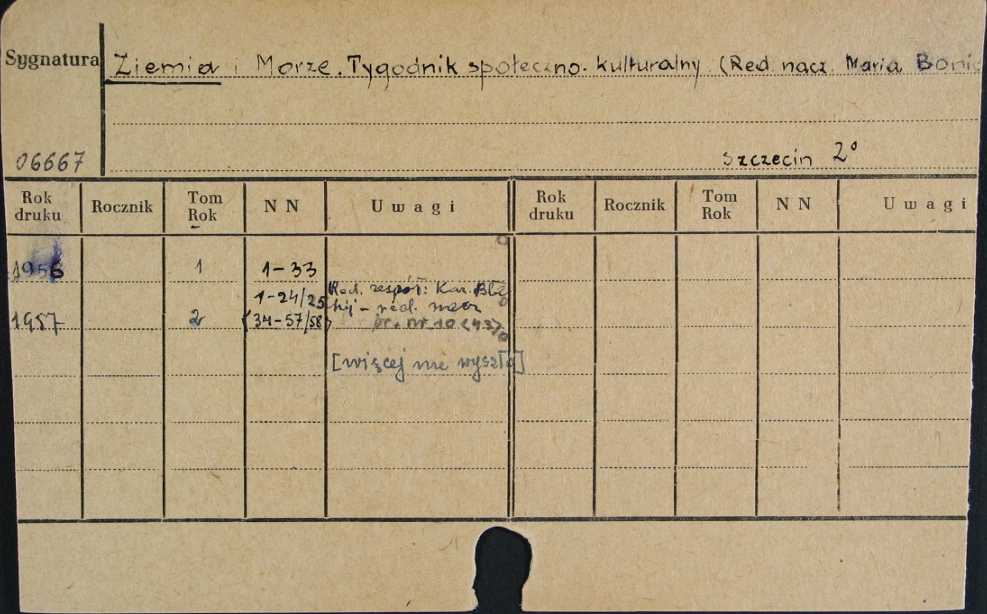 Sygnatura Ziemia i Morze. Tygodnik społeczno-kulturalny (Red. nacz. Maria Bonic
06667 Szczecin 2°
Rok druku Rocznik Tom Rok N N Uwagi Rok druku Rocznik Tom Rok N N Uwagi
1956 1 1-33
1-24/25 Red. zespół: Kaz. Błę
1957 2 {34-57/58} red. nacz
nr 10 (43)
[więcej nie wyszło]